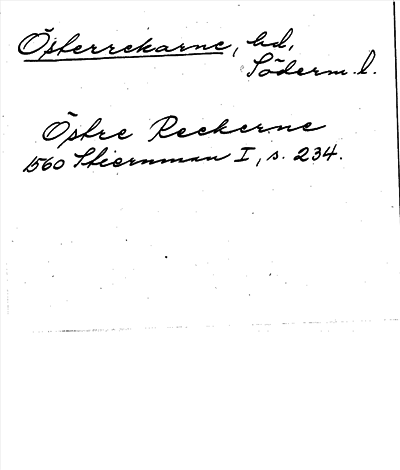 Österrekarne, hd,
Söderm. l.
Östre Reckerne
1560 Stiernman I, s. 234.